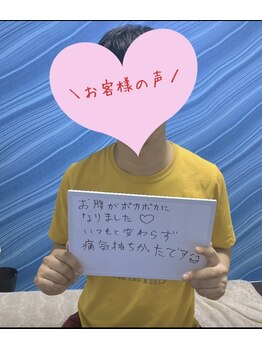 \お客様の声/
お腹がポカポカに
なりました♡
いつもと変わらず
痛気持ちかったです☺